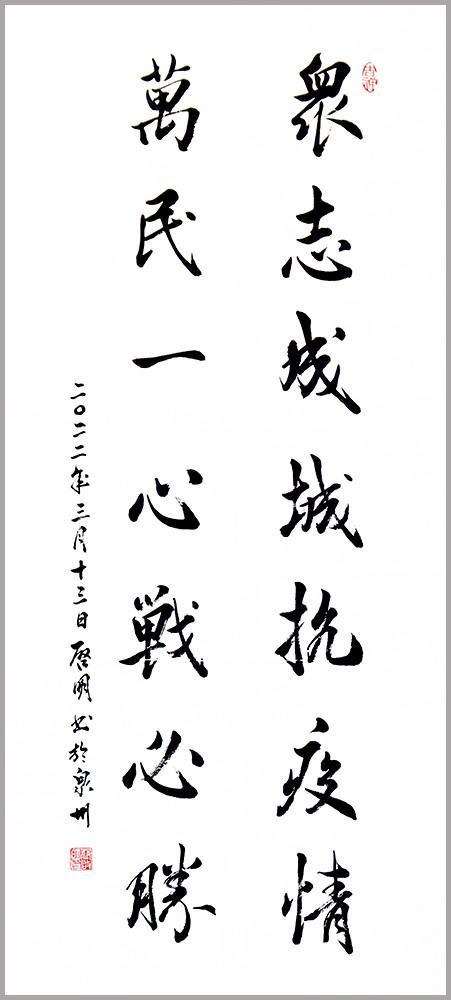 衆志成城抗疫情
萬民一心戰必勝
二〇二二年三月十三日啓明书於泉州